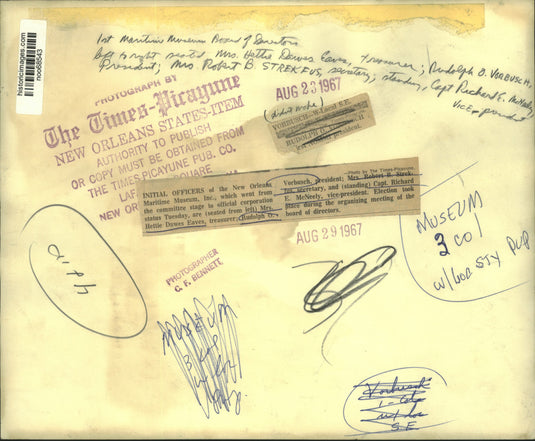 historicimages.com
noo68543
1st Maritime Museum Board of Directors
left to right seated Mrs. Hettie Dawes Eaves, treasurer; Rudolph O. VORBUSCH,
President; Mrs Robert B. STREKFUS, secretary; standing, Capt Richard E. McNeely,
Vice-president
PHOTOGRAPH BY
The Times-Picayune
NEW ORLEANS STATES-ITEM
AUTHORITY TO PUBLISH
OR COPY MUST BE OBTAINED FROM
THE TIMES-PICAYUNE PUB. CO.
SQUARE
NEW OR
AUG 23 1967
(didnt make)
VORBUSCH
S.E.
RUDOLPH
president
—Photo by The Times-Picayune.
INITIAL OFFICERS of the New Orleans
Maritime Museum, Inc., which went from
the committee stage to official corporation
status Tuesday, are (seated from left) Mrs.
Hettie Dawes Eaves, treasurer; Rudolph O.
Vorbusch, president; Mrs. Robert B. Strek-
fus, secretary, and (standing) Capt. Richard
E. McNeely, vice-president. Election took
place during the organizing meeting of the
board of directors.
AUG 29 1967
MUSEUM
3 col
w/
STY
auth
PHOTOGRAPHER
C. F. BENNETT
MUSEUM
3
Vorbusch
1-
S.E